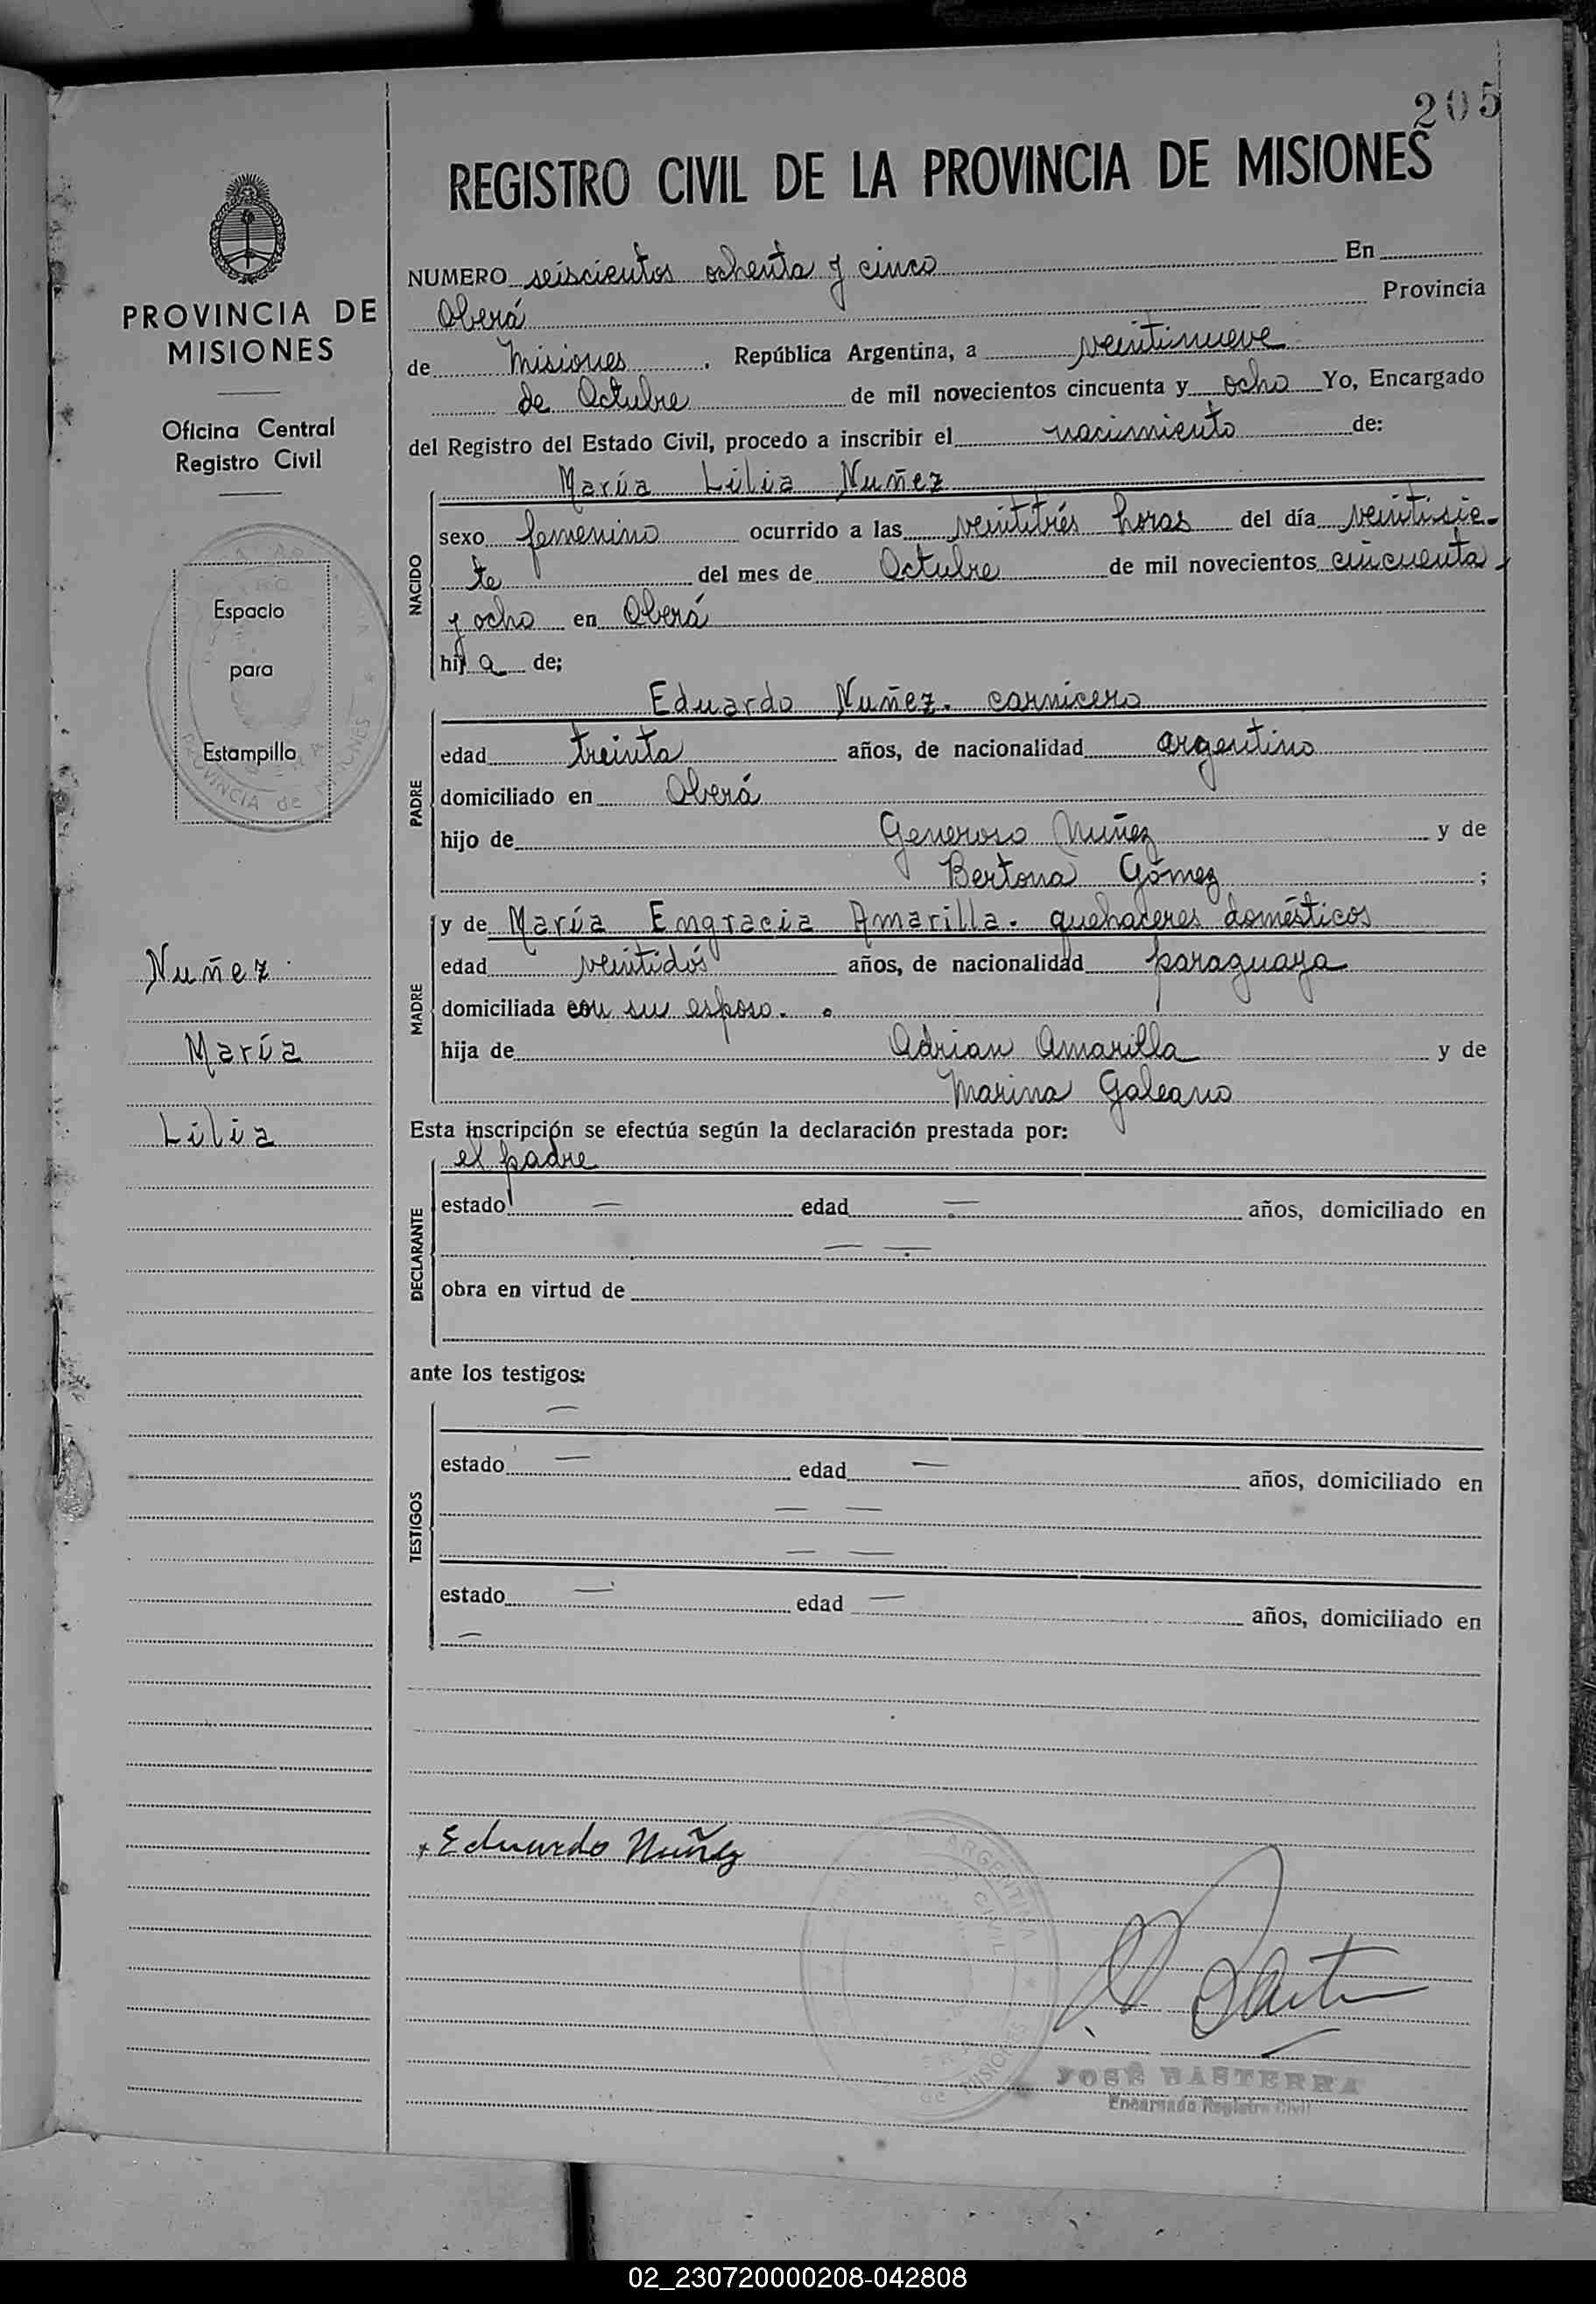 205
REGISTRO CIVIL DE LA PROVINCIA DE MISIONES
PROVINCIA DE
MISIONES
Oficina Central
Registro Civil
Espacio
para
Estampillo
Nuñez
María
Lilia
NUMERO seiscientos ochenta y cinco En
Oberá Provincia
de Misiones. República Argentina, a veintinueve
de Octubre de mil novecientos cincuenta y ocho Yo, Encargado
del Registro del Estado Civil, procedo a inscribir el nacimiento de:
NACIDO
María Lilia Nuñez
sexo femenino ocurrido a las veintitrés horas del día veintisie-
te del mes de Octubre de mil novecientos cincuenta
y ocho en Oberá
hija de;
PADRE
Eduardo Nuñez. carnicero
edad treinta años, de nacionalidad argentino
domiciliado en Oberá
hijo de Generoso Nuñez y de
Bertona Gómez ;
MADRE
y de María Engracia Amarilla. quehaceres domésticos
edad veintidós años, de nacionalidad paraguaya
domiciliada con su esposo.
hija de Adrian Amarilla y de
Marina Galeano
Esta inscripción se efectúa según la declaración prestada por:
DECLARANTE
el padre
estado — edad — años, domiciliado en
— —
obra en virtud de
ante los testigos:
TESTIGOS
—
estado — edad — años, domiciliado en
— —
— —
estado — edad — años, domiciliado en
—
Eduardo Nuñez
ARGENTINA
CIVIL
de MISIONES
JOSÉ BASTERRA
Encargado Registro Civil
PROVINCIA de MISIONES
02_230720000208-042808